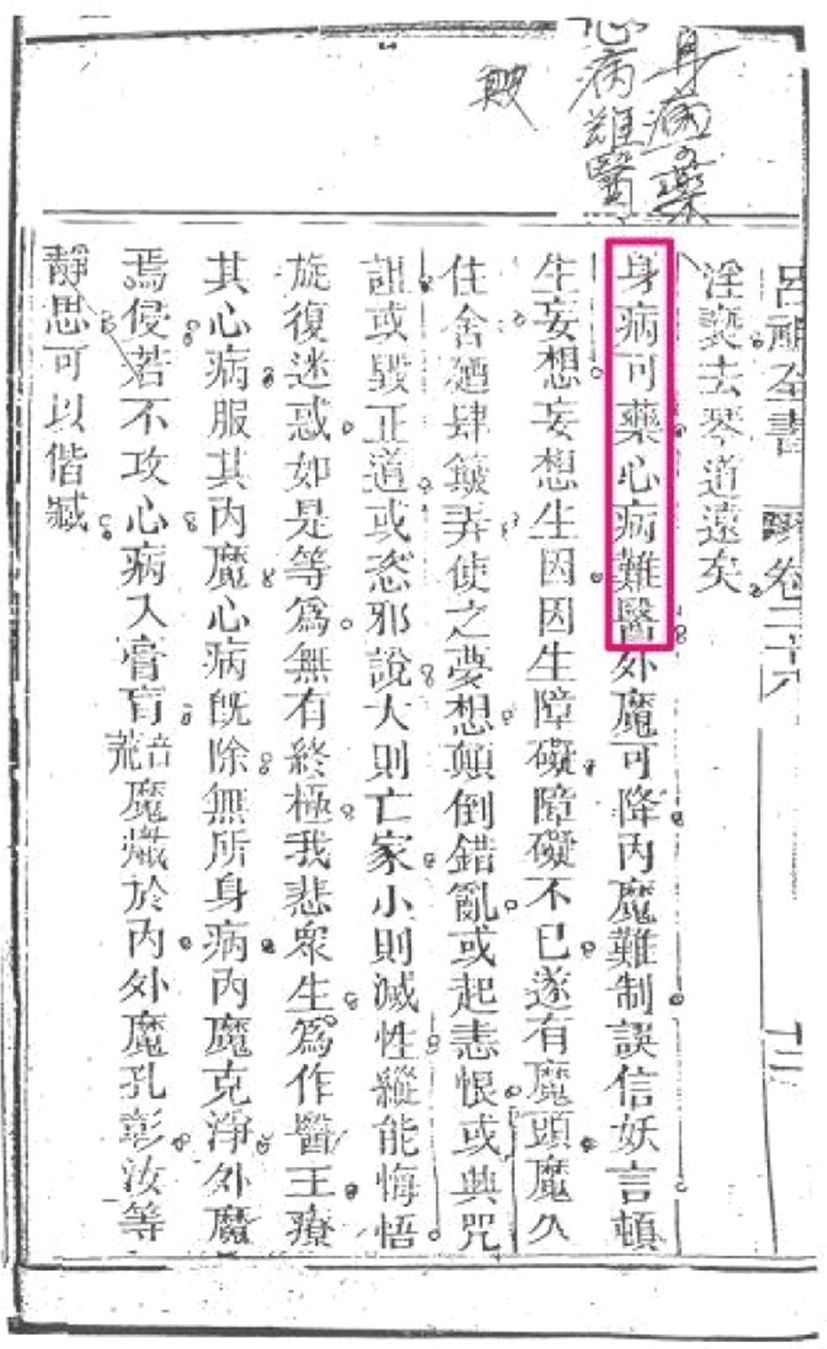 身病可藥
心病難醫
呂祖全書 卷二十八
淫褻去琴道遠矣
身病可藥心病難醫外魔可降內魔難制誤信妖言頓
生妄想妄想生因因生障礙障礙不已遂有魔頭魔久
住舍迺肆簸弄使之夢想顛倒錯亂或起恚恨或興咒
詛或毀正道或恣邪說大則亡家小則滅性纔能悔悟
旋復迷惑如是等為無有終極我悲衆生為作醫王療
其心病服其內魔心病既除無所身病內魔克淨外魔
焉侵若不攻心病入膏肓音荒魔熾於內外魔孔彰汝等
靜思可以偕臧